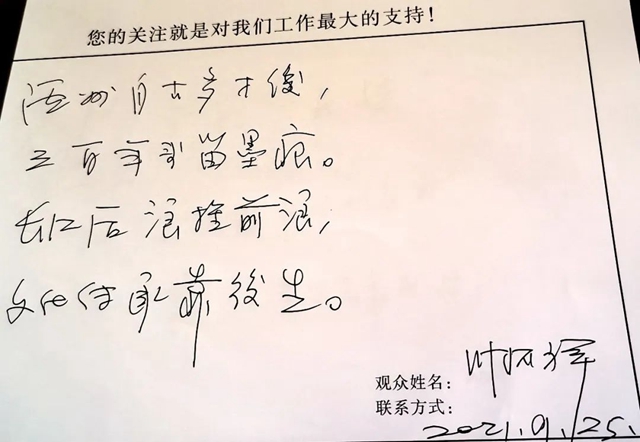 您的关注就是对我们工作最大的支持!
自古多才俊,
三百年 留墨痕。
长江后浪推前浪,
文化传承靠後生。
观众姓名: 叶
联系方式:
2021.9.25.